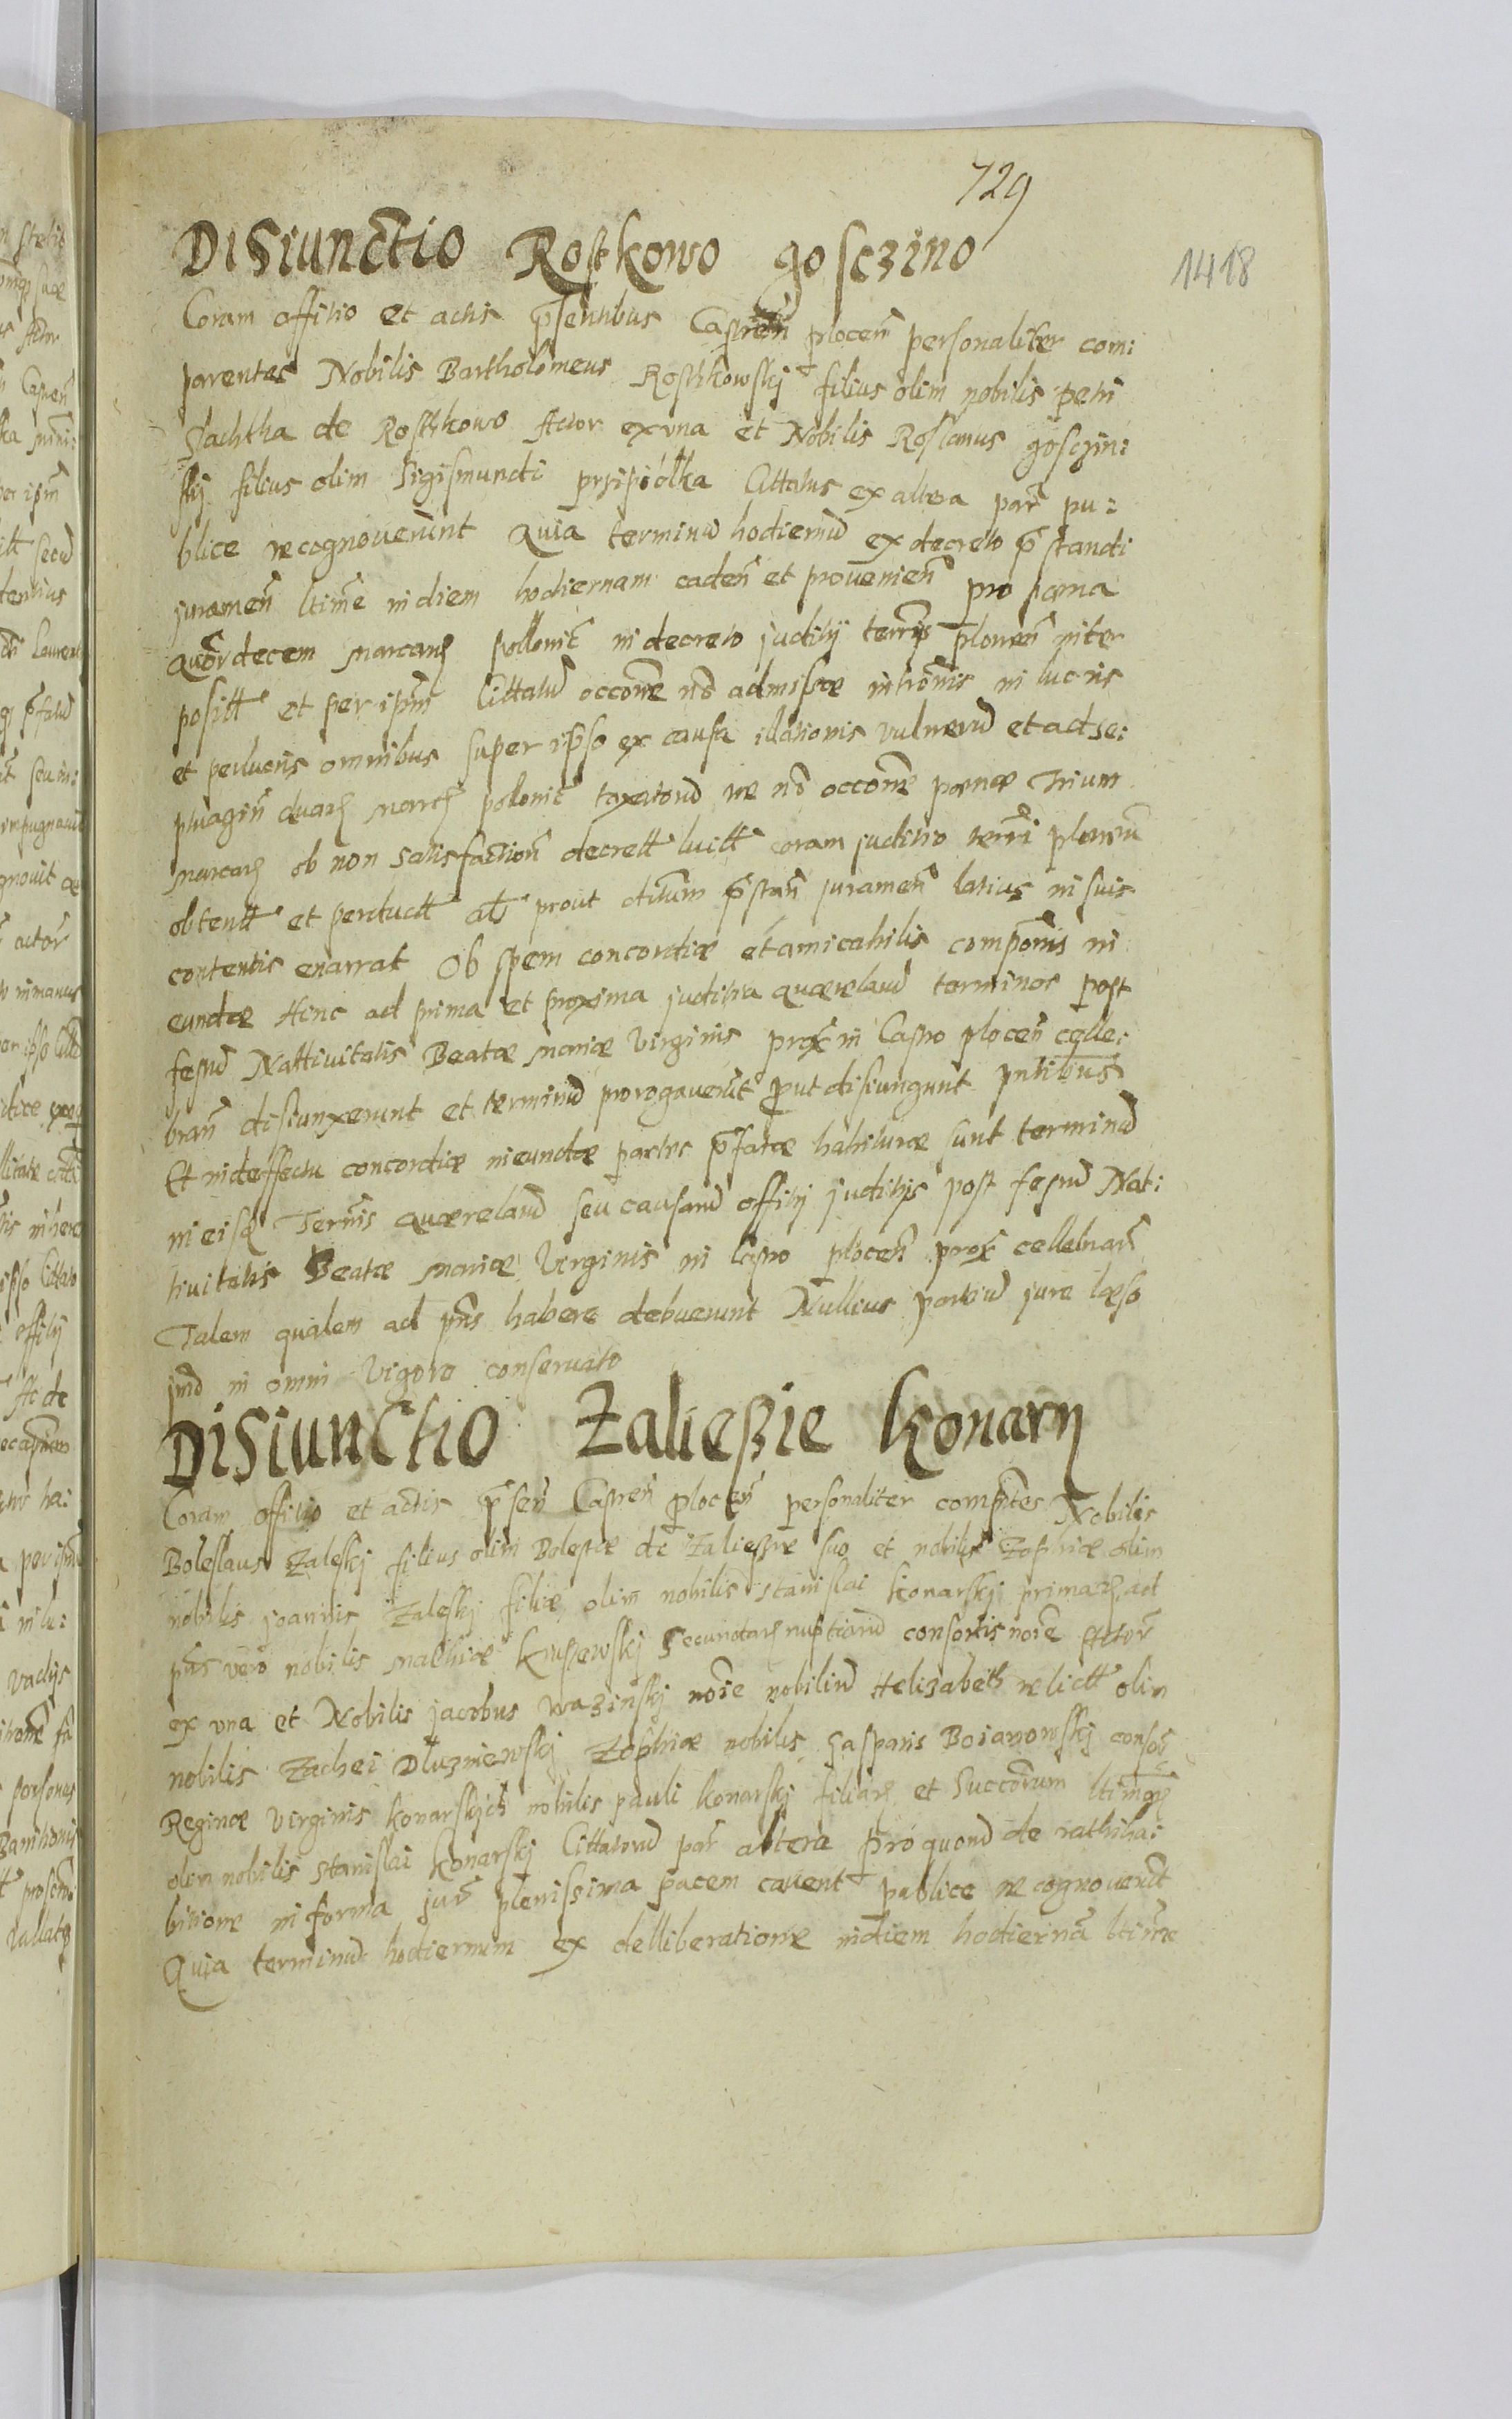 729
1418
Disiunctio Rostkowo gosczino
Coram offitio et actis p̃sentibus Castreñ plocen̄ personaliter com:
parentes Nobilis Bartholomeus Rosthkowskj filius olim nobilis petri
Slachtha de Rosthkowo Actor ex vna et Nobilis Roslanus gosczin:
skj filius olim Sigismundi przipiolka Cittatus ex altera par̃ pu:
blice recognouerunt Quia terminū hodiernū ex decreto p̃standi
juramen̄ ltime in diem hodiernam caden̄ et prouenien̄ pro pœna
quatuordecem marcarꝫ pollonic̄ in decreto juditij terris plonen̄ inter
posit̄t et per ipm̄ Cittatū occōne nō admissæ intromis̄ in lucris
et perlucris omnibus super ipso ex causa illationis vulnerū et ad se:
ptuagin̄ duarꝫ marcꝫ polonic̄ taxatorū ne nō occōne pœnæ trium
marcarꝫ ob non satisfactioñ decret̄t luitt̄ coram juditio terr̄i plonen̄
obtent̄t et perduct̄t al̄s prout ditum p̃stan̄ juramen̄ latius in suis
contentis enarrat Ob spem concordiæ et amicabilis compōnis in
eundæ Hinc ad prima et proxima juditia quærelarū terminos post
festū Nattiuitatis Beatæ mariæ Virginis prox̄ in Castro plocen̄ celle:
bran̄ disiunxerunt et terminū prorogauerūt p̱ut disiungunt pn̄tibus
Et in deffectu concordiæ ineundæ partes p̃fatæ habituræ sunt terminū
in eisdē Termis quærelarū seu causarū offitij juditijs post festū Nat:
tiuitatis Beatæ mariæ Virginis in Castro plocen̄ prox̄ cellebran̄
Talem qualem ad pn̄s habere debuerunt Nullius partiū jure læso
jmō in omni vigore conseruato
Disiunctio Zaliesszie Konary
Coram offitio et actis p̃sen̄ Castren̄ plocen̄ personaliter compn̄tes Nobilis
Boleslaus Zaleskj filius olim Bolestæ de Zaliessze suo et nobilis Zophiæ olim
nobilis joannis Zaleskj filiæ olim nobilis stanislai Konarskj primarꝫ ad
pn̄s vero nobilis mathiæ Krussewskj secundarꝫ nuptiarū consortis nōie Actor̄
ex vna et Nobilis jacobus Wazinskj nōie nobiliū Helizabeth relict̄t olim
nobilis Zachei Dluzniewskj Zophiæ nobilis Gasparis Boianowskj consor̄
Reginæ virginis Konarskich nobilis pauli Konarskj filiarꝫ et Succorum ltimorꝫ
olim nobilis stanislai Konarskj Cittatorū par̃ altera pro quorū de rathiha:
bitione in forma jur̃ plenissima pacem cauent publice recognouerūt
Quia terminū hodiernum ex delliberatione in diem hodiernā ltime